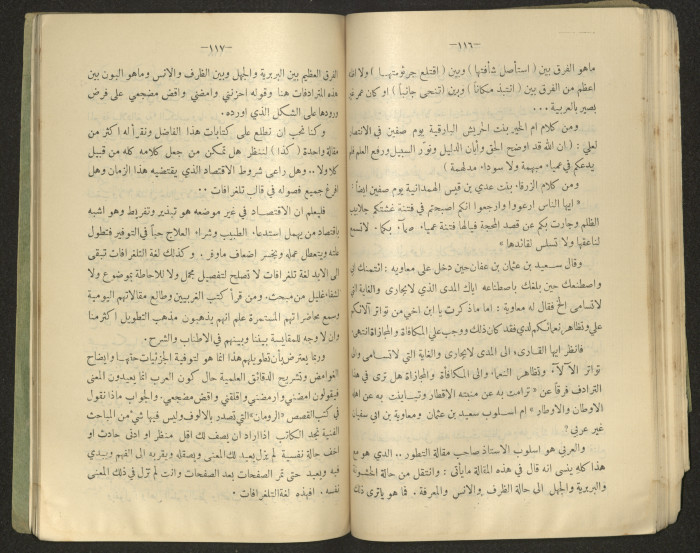 —١١٦—
ماهو الفرق بين ( استأصل شأفتها ) وبين ( اقتلع جرثومتها ) ولا الفرق
اعظم من الفرق بين ( انتبذ مكاناً ) وبين ( تنحى جانباً ) او كان عمر غير
بصير بالعربية . . .
ومن كلام ام الخير بنت الحريش البارقية يوم صفين في الانتصار
لعلي : ( ان الله قد اوضح الحق وأبان الدليل ونوّر السبيل ورفع العلم فلم
يدعكم في عمياء مبهمة ولا سوداء مدلهمة )
ومن كلام الزرقاء بنت عدي بن قيس الهمدانية يوم صفين ايضاً :
« ايها الناس ارعووا وارجعوا انكم اصبحتم في فتنة غشتكم جلابيب
الظلم وجارت بكم عن قصد المحجة فيالها فتنة عمياء صماء بكماء لا تسمع
لناعقها ولا تسلس لقائدها »
وقال سعيد بن عثمان بن عفان حين دخل على معاوية : ائتمنك
واصطنعك حين بلغك باصطناعه اياك المدى الذي لايجارى والغاية التي
لاتسامى الخ فقال له معاوية : اما ماذكرت يا ابن اخي من تواتر آلائكم
علي وتظاهر نعمائكم لدي فقد كان ذلك ووجب علي المكافأة والمجازاة
فانظر ايها القارىء الى المدى لايجارى والغاية التي لاتسامى والى
تواتر الآلاء وتظاهر النعماء والى المكافأة والمجازاة هل ترى في هذا
الترادف فرقاً عن « ترامت به عن منبته الاقطار وتباينت به عن اهله
الاوطان والاوطار » ام اسلوب سعيد بن عثمان ومعاوية بن ابي سفيان
غير عربي ؟
والعربي هو اسلوب الاستاذ صاحب مقالة التطور . . الذي هو مع
هذا كله ينسى انه قال في هذه المقالة مايأتى : وانتقل من حالة الخشونة
والبربرية والجهل الى حالة الظرف والانس والمعرفة . فما هو ياترى ذلك
—١١٧—
الفرق العظيم بين البربرية والجهل وبين الظرف والانس وماهو البون بين
هذه المترادفات هنا وقوله احزنني وامضني واقض مضجعي على فرض
ورودها على الشكل الذي اورده .
وكنا نحب ان نطلع على كتابات هذا الفاضل ونقرأ له اكثر من
مقالة واحدة ( كذا ) لننظر هل تمكن من جعل كلامه كله من قبيل
كلا ولا . . وهل راعى شروط الاقتصاد الذي يقتضيه هذا الزمان وهل
افرغ جميع فصوله في قالب تلغرافات . .
فليعلم ان الاقتصاد في غير موضعه هو تبذير وتفريط وهو اشبه
باقتصاد من يهمل استدعاء الطبيب وشراء العلاج حباً في التوفير فتطول
علته ويتعطل عمله ويخسر اضعاف ماوفر . وكذلك لغة التلغرافات تبقى
الى الابد لغة تلغرافات لا تصلح لتفصيل مجمل ولا للاحاطة بموضوع ولا
لشفاء غليل من مبحث . ومن قرأ كتب الغربيين وطالع مقالاتهم اليومية
وسمع محاضراتهم المستمرة علم انهم يذهبون مذهب التطويل اكثر منا
وان لا وجه للمقايسة بيننا وبينهم في الاطناب والشرح .
وربما يعترض بأن تطويلهم هذا انما هو لتوفية الجزئيات حقها وايضاح
الغوامض وتشريح الدقائق العلمية حال كون العرب انما يعيدون المعنى
فيقولون امضني وارمضني واقلقني واقض مضجعي . والجواب ماذا نقول
في كتب القصص «الرومان» التي تصدر بالالوف وليس فيها شيء من المباحث
الفنية تجد الكاتب اذا اراد ان يصف لك اقل منظر او ادنى حادث او
اخف حالة نفسية لم يزل يعيد لك المعنى ويصقله ويقربه الى الفهم ويبدي
فيه ويعيد حتى تمر الصفحات بعد الصفحات وانت لم تزل في ذلك المعنى
نفسه . افهذه لغة التلغرافات .